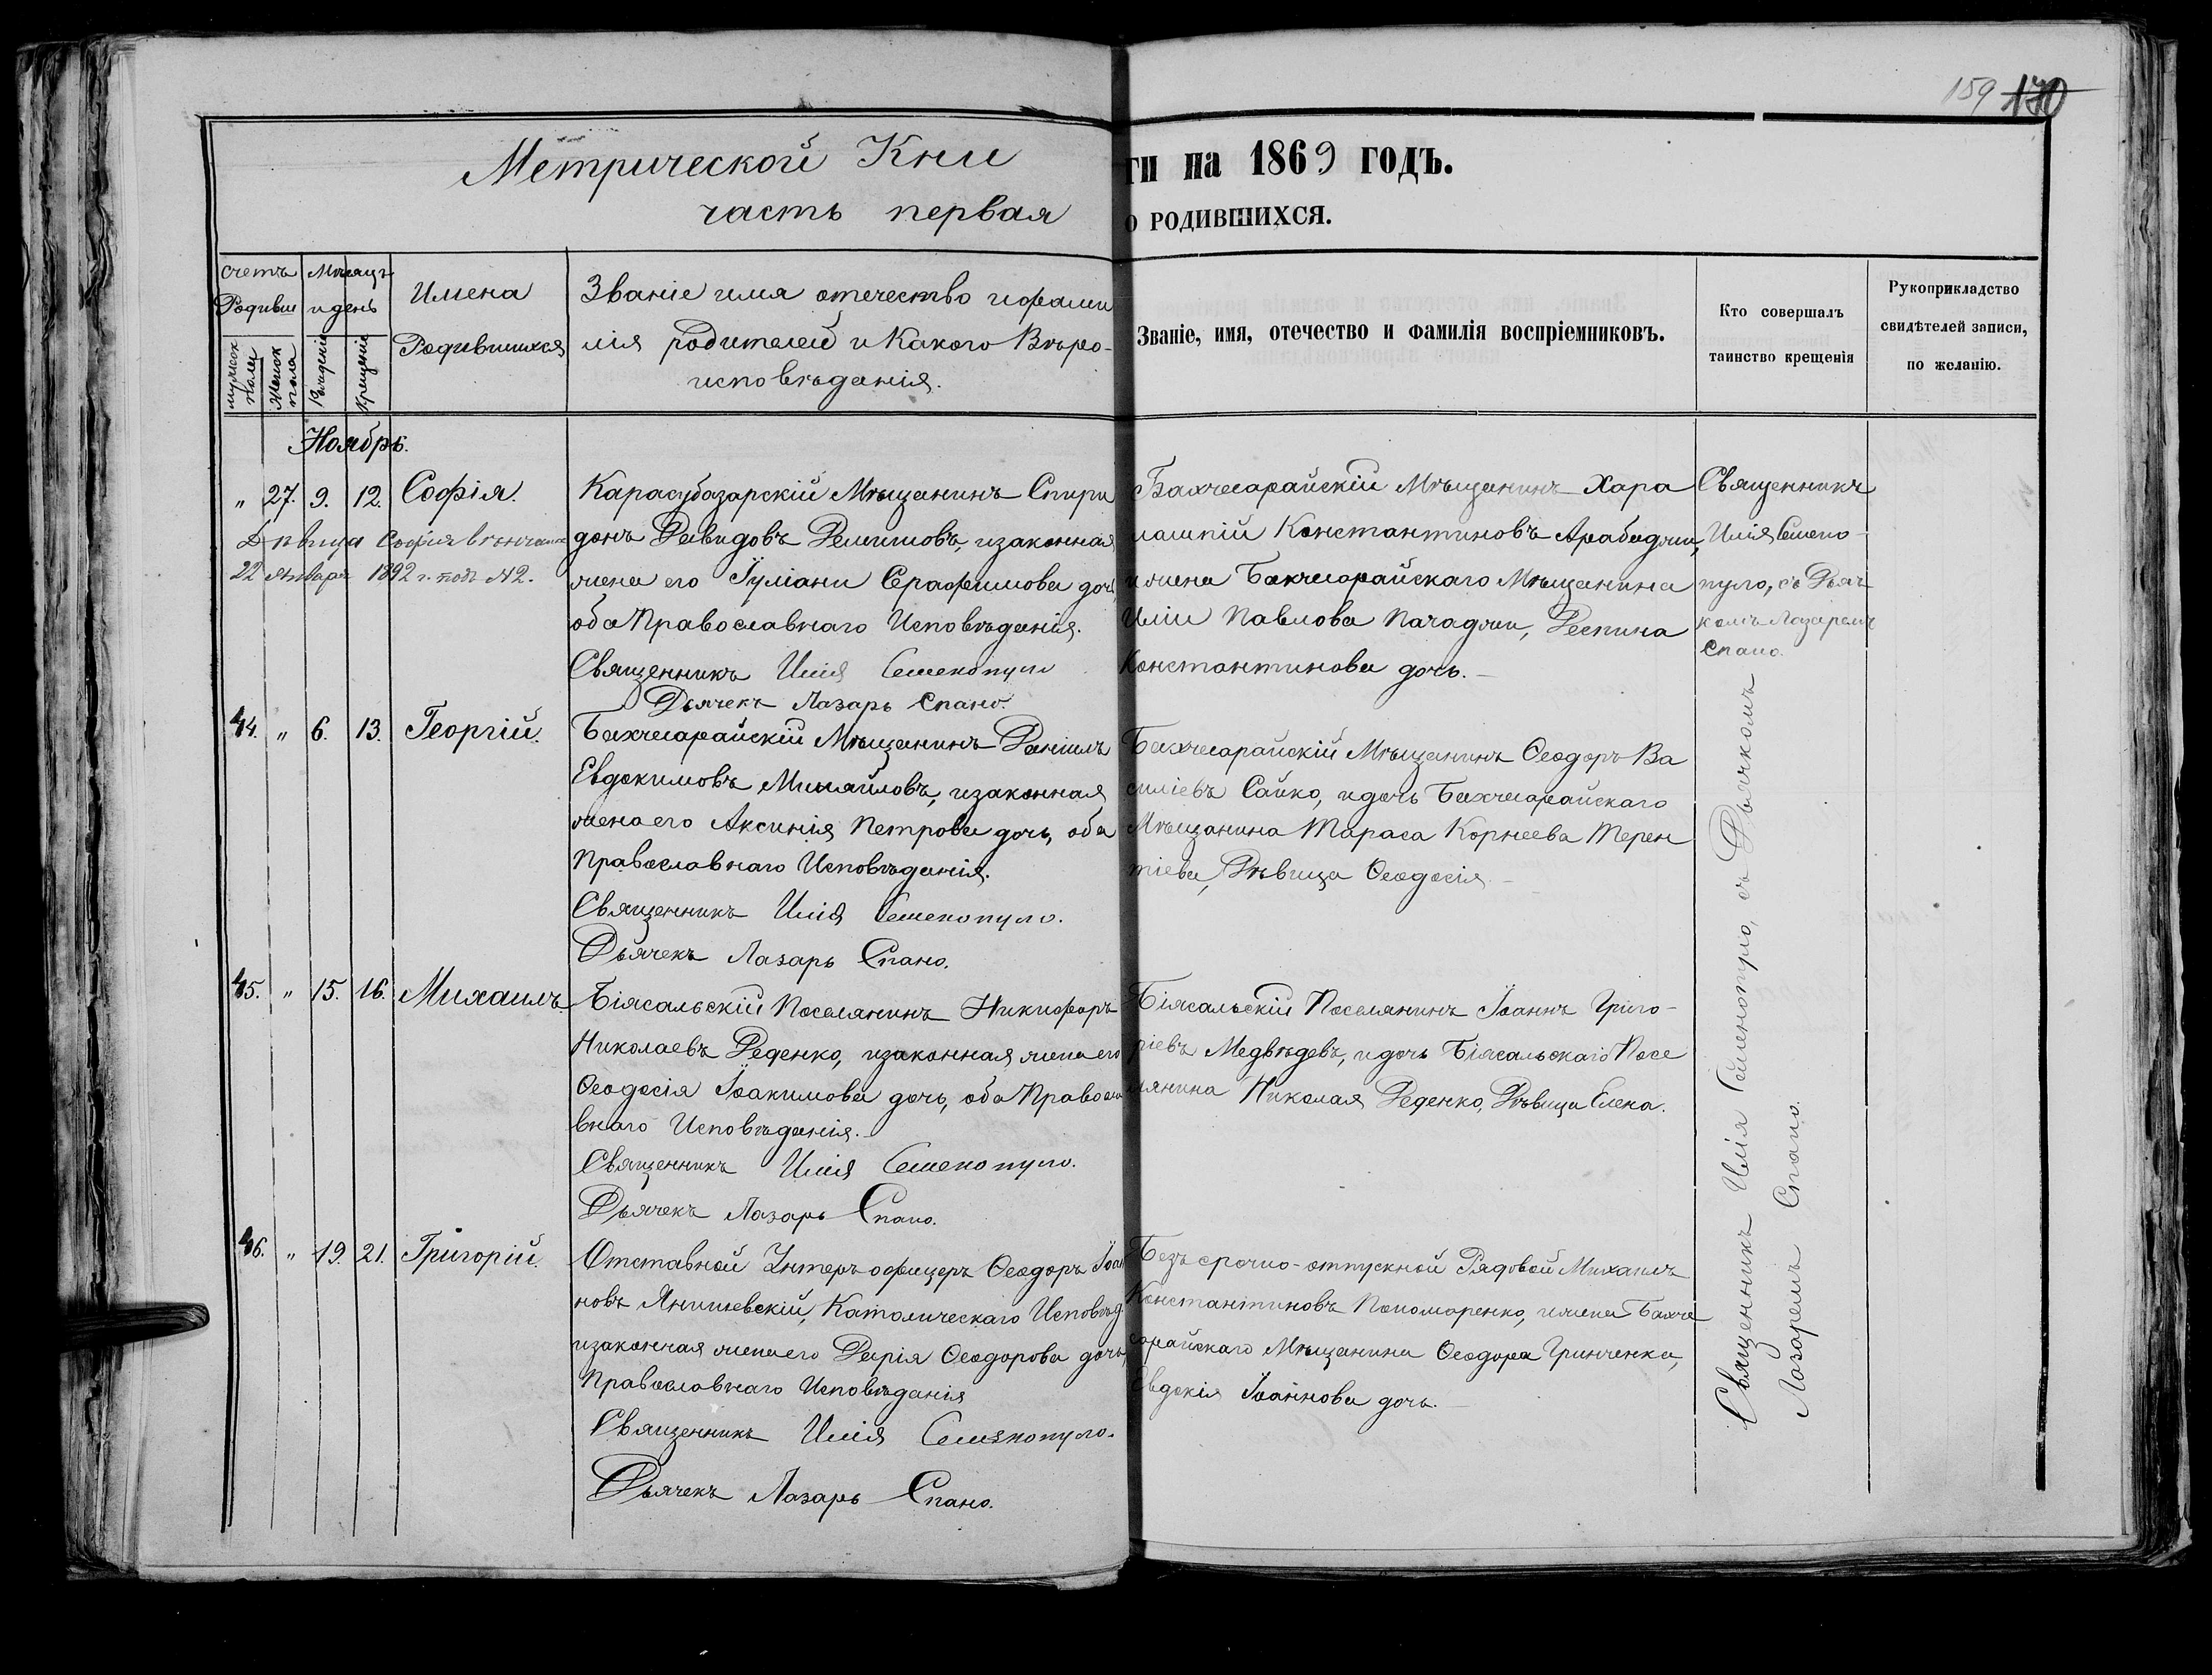 159 170
Метрической Кни
ги на 1869 годъ.
часть первая
о родившихся.
счетъ Родивш
Мѣсяцъ и день
мужеск пола
Женск пола
Рожденія
Крещенія
Имена Родившихся
Званіе имя отечество и фами
лія родителей и Какого Вѣро-
исповѣданія.
Званіе, имя, отечество и фамилія воспріемниковъ.
Кто совершалъ
таинство крещенія
Рукоприкладство
свидѣтелей записи,
по желанію.
Ноябрь.
„ 27. 9. 12. Софія.
Дѣвица Софія вѣнчана
22 января 1892 г. подъ №2.
Карасубазарскій Мѣщанинъ Спири
донъ Давидовъ, и законная
жена его Іуліани Серафимова дочь,
оба Православнаго Исповѣданія.
Священникъ Илія
Дьячекъ Лазарь Спано.
Бахчесарайскій Мѣщанинъ Хара
лампій Константиновъ Арабаджи,
и жена Бахчесарайскаго Мѣщанина
Иліи Павлова Пачаджи, Деспина
Константинова дочь.
Священникъ
Илія
пуло, съ Дьяч
комъ Лазаремъ
Спано.
44. „ 6. 13. Георгій.
Бахчесарайскій Мѣщанинъ Даніилъ
Евдокимовъ Михайловъ, и законная
жена его Аксинія Петрова дочь, оба
Православнаго Исповѣданія.
Священникъ Илія
Дьячекъ Лазарь Спано.
Бахчесарайскій Мѣщанинъ Ѳеодоръ Ва
силіевъ Сайко, и дочь Бахчесарайскаго
Мѣщанина Тараса Корнеева Терен
тіева, Дѣвица Ѳеодосія.
45. „ 15. 16. Михаилъ
Біясальскій Поселянинъ Никифоръ
Николаевъ Реденко, и законная жена его
Ѳеодосія Іоакимова дочь, оба Правосла
внаго Исповѣданія.
Священникъ Илія
Дьячекъ Лазарь Спано.
Біясальскій Поселянинъ Іоаннъ Григо-
ріевъ Медвѣдевъ, и дочь Біясальскаго Посе
лянина Николая Реденко, Дѣвица Елена.
46. „ 19. 21. Григорій.
Отставной Унтеръ-офицеръ Ѳеодоръ Іоан
новъ Янишевскій, Католическаго Исповѣд.
и законная жена его Дарія Ѳеодорова дочь,
Православнаго Исповѣданія
Священникъ Илія
Дьячекъ Лазарь Спано.
Безсрочно-отпускной Рядовой Михаилъ
Константиновъ Пономаренко, и жена Бахче
сарайскаго Мѣщанина Ѳеодора Гринченка,
Евдокія Іоаннова дочь.
Священникъ Илія съ Дьячкомъ
Лазаремъ Спано.